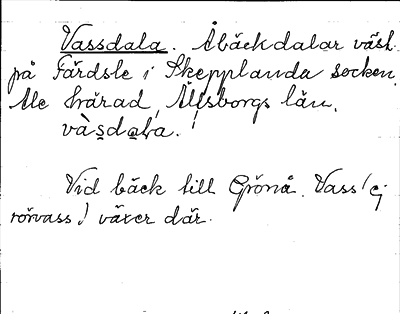 Vassdala. Åbäckdalar väst
på Färdsle i Skepplanda socken,
Ale härad, Älfsborgs län.
vàsdala.
Vid bäck till Grönå. Vass (ej
rörvass) växer där.